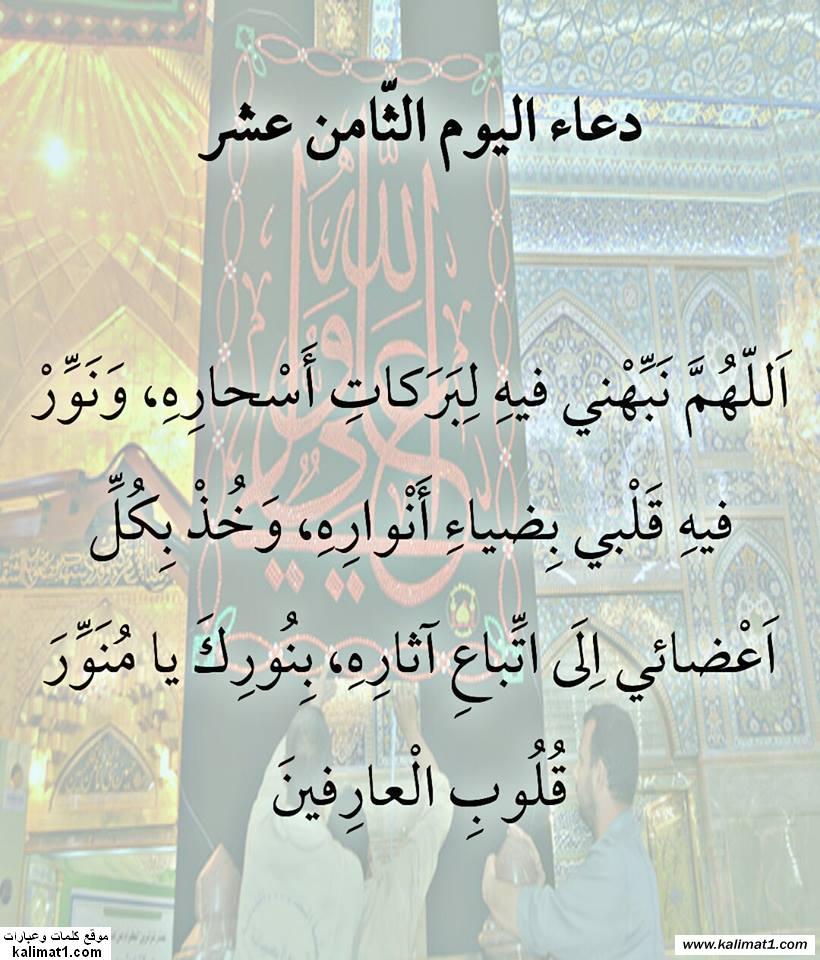 دعاء اليوم الثّامن عشر
اَللّهُمَّ نَبِّهْني فيهِ لِبَرَكاتِ أَسْحارِهِ، وَنَوِّرْ
فيهِ قَلْبي بِضياءِ أَنْوارِهِ، وَخُذْ بِكُلِّ
اَعْضائي اِلَى اتِّباعِ آثارِهِ، بِنُورِكَ يا مُنَوِّرَ
قُلُوبِ الْعارِفينَ
موقع كلمات وعبارات
kalimat1.com
www.kalimat1.com